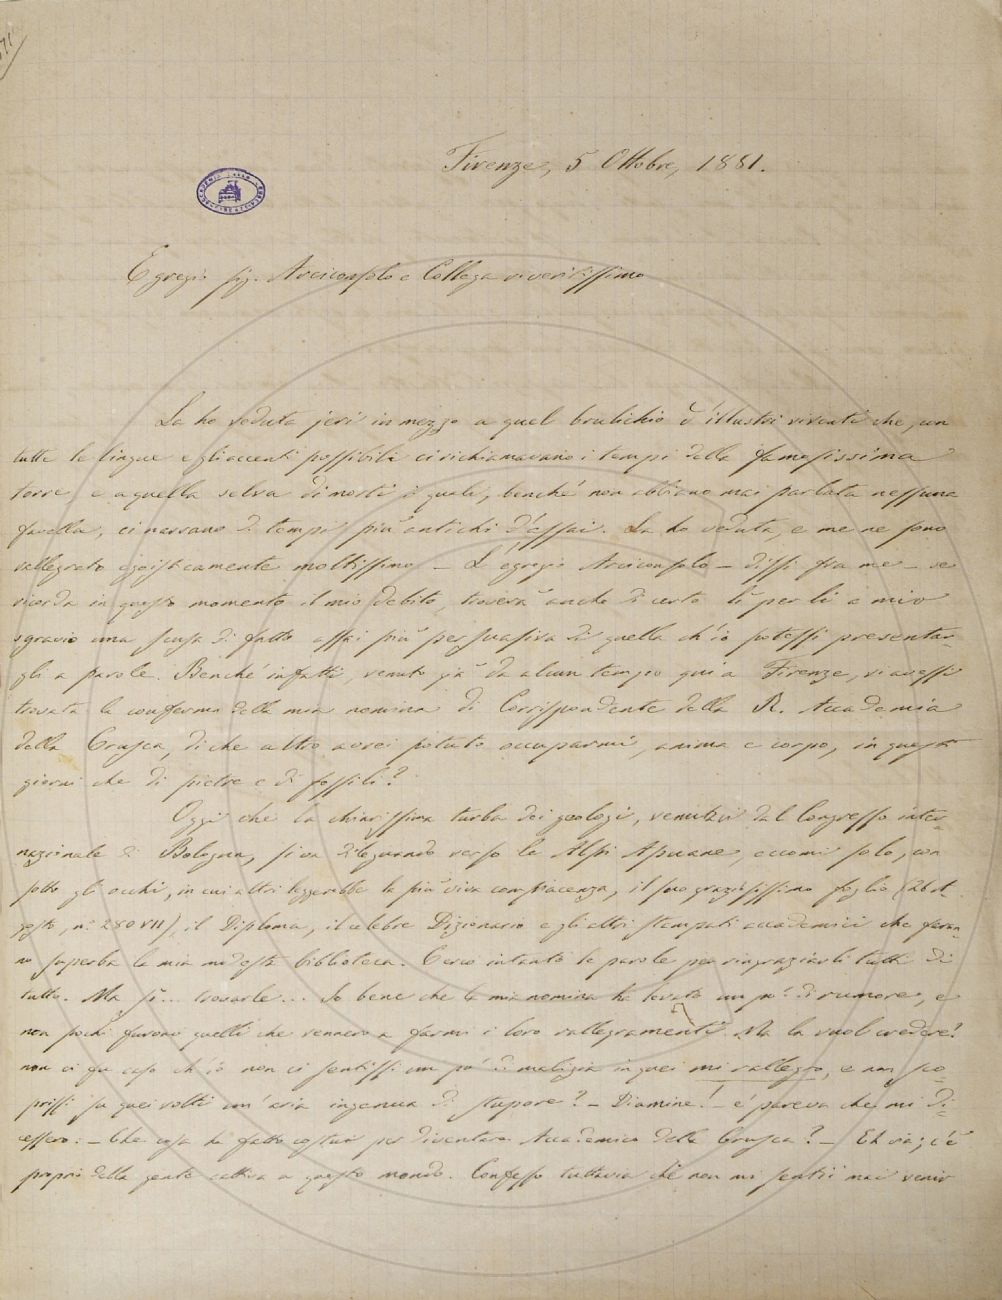 Firenze, 5 Ottobre, 1881.
Egregio sig. Arciconsolo e Collega riveritissimo
La ho veduta jeri in mezzo a quel brulichio d'illustri viventi che, con
tutte le lingue e gli accenti possibili ci richiamavano i tempi della famosissima
torre, e a quella selva di morti i quali, benché non abbiano mai parlata nessuna
favella, ci narrano di tempi più antichi d'assai. La ho veduta, e me ne sono
rallegrato egoisticamente moltissimo – L'egregio Arciconsolo – dissi fra me – se
ricorda in questo momento il mio debito, troverà anche di certo lì per lì a mio
sgravio una scusa di fatto assai più persuasiva di quella ch'io potessi presentar-
gli a parole. Benché infatti, venuto già da alcun tempo qui a Firenze, vi avessi
trovata la conferma della mia nomina di Corrispondente della R. Accademia
della Crusca, di che altro avrei potuto occuparmi, anima e corpo, in questi
giorni che di pietre e di fossili?
Oggi che la chiarissima turba dei geologi, venutivi dal Congresso inter-
nazionale di Bologna, si va dileguando verso le Alpi Apuane eccomi solo, con
sotto gli occhi, in cui altri leggerebbe la più viva compiacenza, il suo graziosissimo foglio (26 A-
gosto, n.º 280 VII), il Diploma, il celebre Dizionario e gli altri stampati accademici che faran-
no superba la mia modesta biblioteca. Cerco intanto le parole per ringraziarli tutti di
tutto. Ma sì... trovarle... So bene che la mia nomina ha levato un po' di rumore, e
non pochi furono quelli che vennero a farmi i loro rallegramenti. Ma la vuol credere?
non ci fu caso ch'io non ci sentissi un po' di malizia in quei mi rallegro, e non sco-
prissi su quei volti un'aria ingenua di stupore? – Diamine! – e' pareva che mi di-
cessero: – Che cosa ha fatto costui per diventare Accademico della Crusca? – Eh via; c'è
proprio della gente cattiva a questo mondo. Confesso tuttavia che non mi sentii mai venir